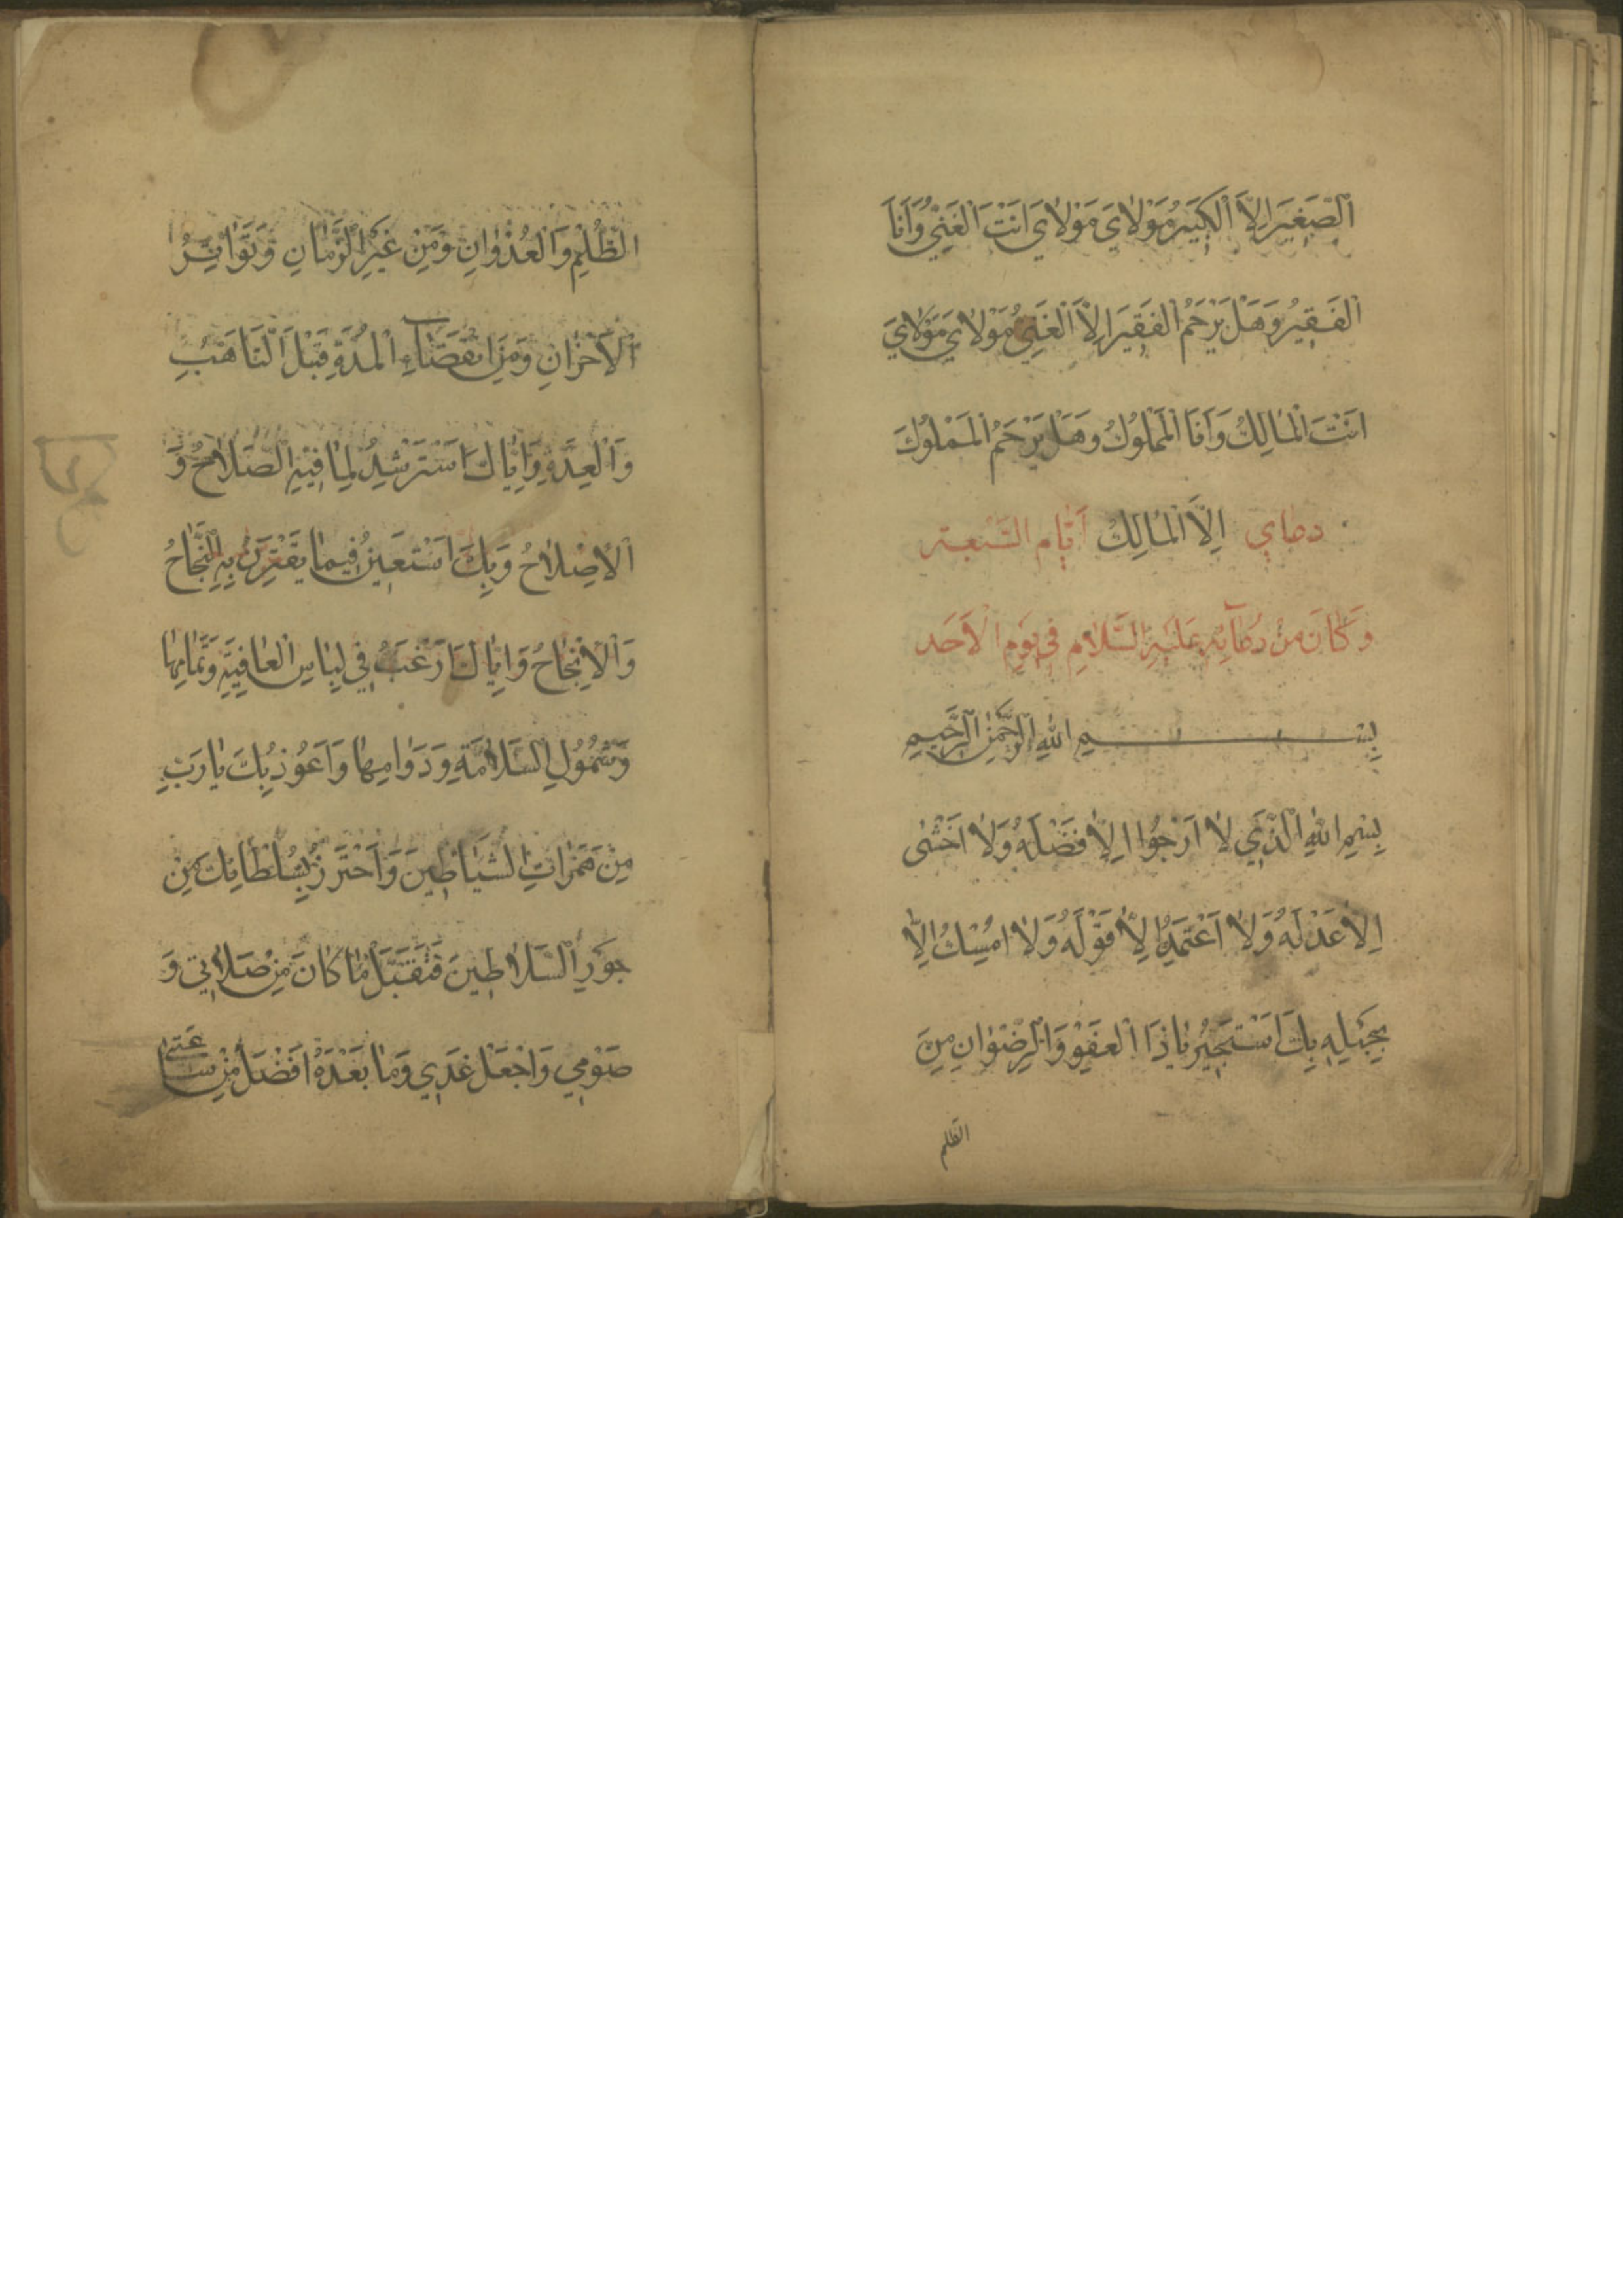 الصَّغِيرَ اِلاَّ الْكَبِيرُ مَوْلاىَ مَوْلاىَ اَنْتَ الْغَنِىُّ وَاَنَا
الْفَقِيرُ وَهَلْ يَرْحَمُ الْفَقِيرَ اِلاَّ الْغَنِىُّ مَوْلاىَ مَوْلاىَ
اَنْتَ الْمالِكُ وَاَنَا الْمَمْلُوكُ وَهَلْ يَرْحَمُ الْمَمْلُوكَ
دعاي اِلاَّ الْمالِكُ اَيّام السَّبعة
وَ كانَ من دُعآئِهِ عَلَيْهِ السَّلامِ فى يَوْمِ الْاَحَد
بِسْمِ اللهِ الرَّحْمٰنِ الرَّحِيمِ
بِسْمِ اللهِ الَّذِي لا اَرْجُوا اِلاّ فَضْلَهُ وَلا اَخْشٰى
اِلاّ عَدْلَهُ وَلا اَعْتَمِدُ اِلاّ قَوْلَهُ وَلا اُمْسِكُ اِلاّ
بِحَبْلِهِ بِكَ اَسْتَجِيرُ يا ذَا الْعَفْوِ وَالرِّضْوانِ مِنَ
الظلم
الظُّلْمِ وَالْعُدْوانِ وَمِنْ غِيَرِ الزَّمانِ وَتَواتُرِ
الْاَحْزانِ وَمِنِ انْقِضآءِ الْمُدَّةِ قَبْلَ التَّاَهُّبِ
وَالْعِدَّةِ وَاِيّاكَ اَسْتَرْشِدُ لِما فِيهِ الصَّلاحُ وَ
الْاِصْلاحُ وَبِكَ اَسْتَعِينُ فِيما يَقْتَرِنُ بِهِ النَّجاحُ
وَالْاِنْجاحُ وَاِيّاكَ اَرْغَبُ فِي لِباسِ الْعافِيَةِ وَتَمامِها
وَشُمُولِ السَّلامَةِ وَدَوامِها وَاَعُوذُ بِكَ يا رَبِّ
مِنْ هَمَزاتِ الشَّياطِينَ وَاَحْتَرِزُ بِسُلْطانِكَ مِنْ
جَوْرِ السَّلاطِينَ فَتَقَبَّلْ ما كانَ مِنْ صَلاتِي وَ
صَوْمِي وَاجْعَلْ غَدِي وَما بَعْدَهُ اَفْضَلَ مِنْ ساعَتِى